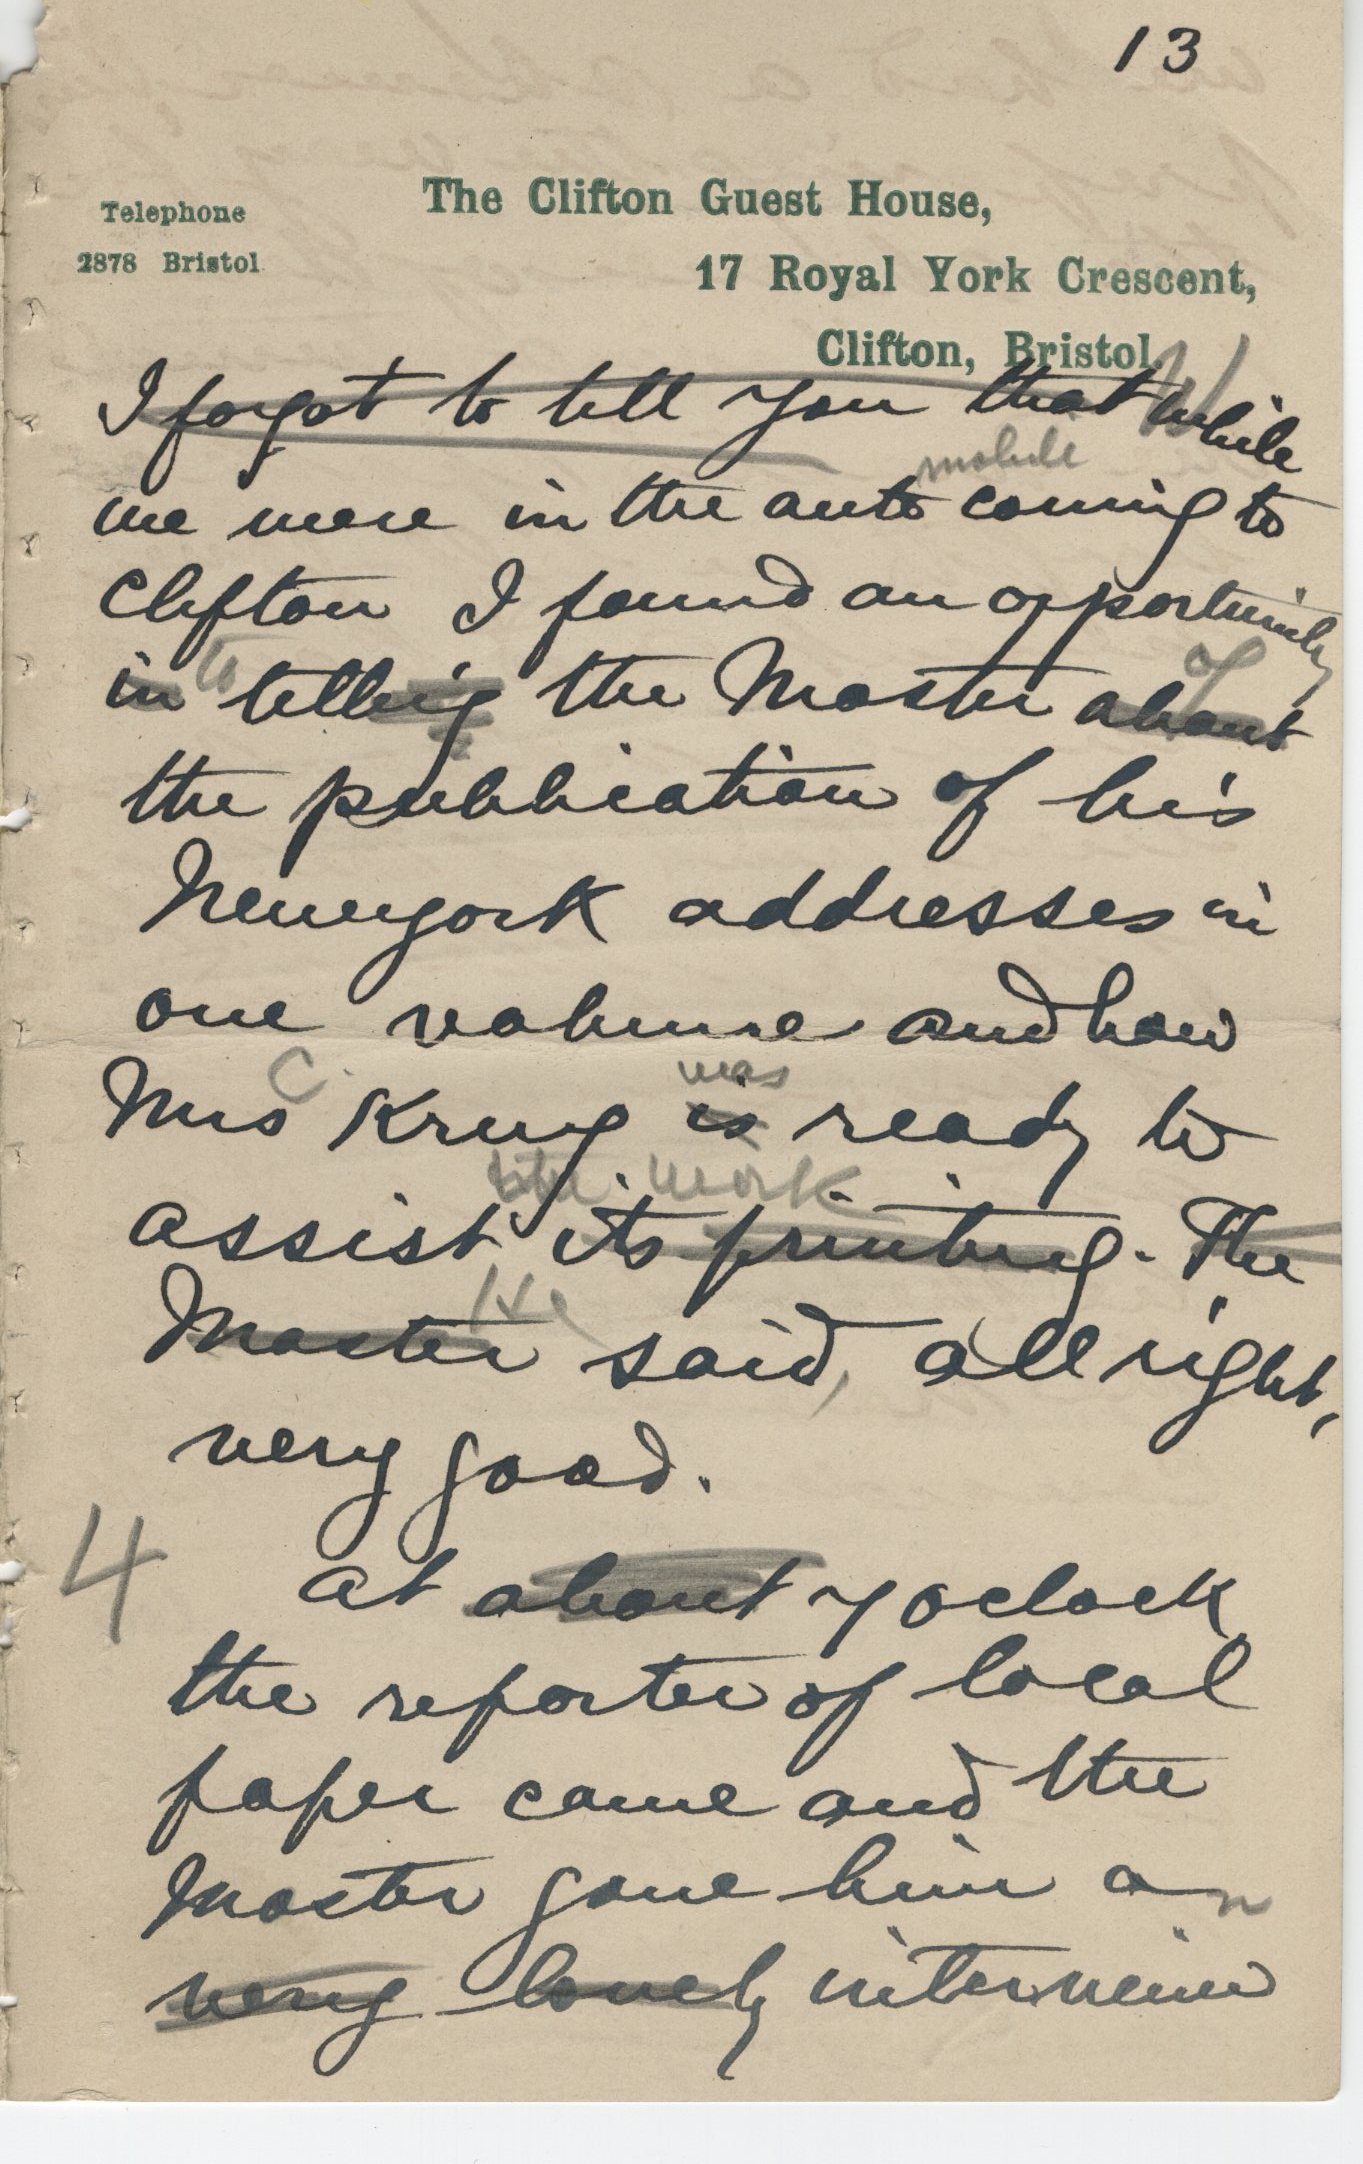 13
Telephone
2878 Bristol
The Clifton Guest House,
17 Royal York Crescent,
Clifton, Bristol.
I forgot to tell you that while W
mobile
we were in the auto coming to
Clifton I found an opportunity
to of
in telling the Master about
the publication of his
Newyork addresses in
one volume and how
C. was
Mrs Krug is ready to
work
assist its printing. The
He
Master said, all right,
very good.
4 at about 7 oclock
the reporter of local
paper came and the
Master gave him an
very lovely interview